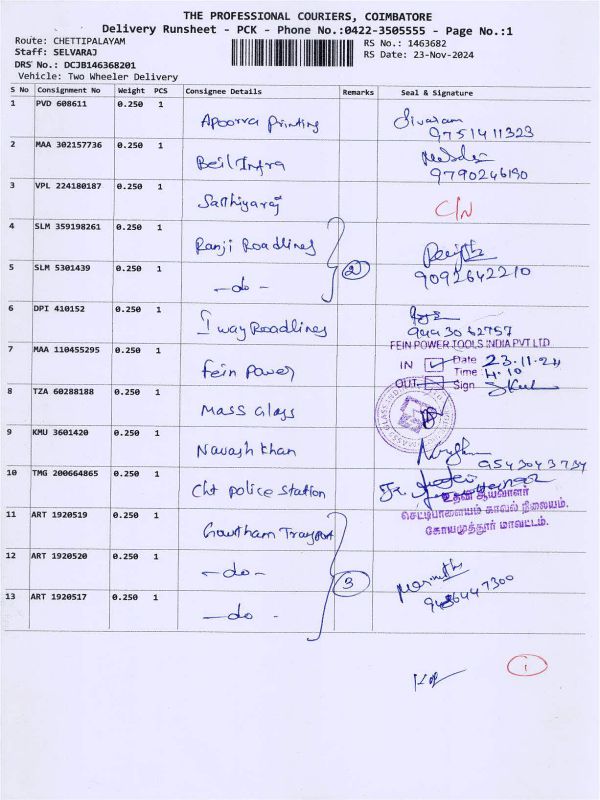 THE PROFESSIONAL COURIERS, COIMBATORE
Delivery Runsheet - PCK - Phone No.:0422-3505555 - Page No.:1
Route: CHETTIPALAYAM RS No.: 1463682
Staff: SELVARAJ RS Date: 23-Nov-2024
DRS No.: DCJB146368201
Vehicle: Two Wheeler Delivery
S No Consignment No Weight PCS Consignee Details Remarks Seal & Signature
1 PVD 608611 0.250 1 Apoorva Printing Sivaram
9751411323
2 MAA 302157736 0.250 1 Beil Infra
9790246190
3 VPL 224180187 0.250 1 Sathiyaraj C/N
4 SLM 359198261 0.250 1 Ranji Roadlines
5 SLM 5301439 0.250 1 -do- 2 9092642210
6 DPI 410152 0.250 1 I way Roadlines
9493062757
FEIN POWER TOOLS INDIA PVT LTD
7 MAA 110455295 0.250 1 Fein Power IN Date 23.11.24
Time 4.10
OUT Sign
8 TZA 60288188 0.250 1 Mass Glass
9 KMU 3601420 0.250 1 Navash Khan
9543043734
10 TMG 200664865 0.250 1 Cht Police Station
உதவி ஆய்வாளர்
செட்டிபாளையம் காவல் நிலையம்.
கோயமுத்தூர் மாவட்டம்.
11 ART 1920519 0.250 1 Gowtham Transport
12 ART 1920520 0.250 1 -do- 3
13 ART 1920517 0.250 1 -do-
1